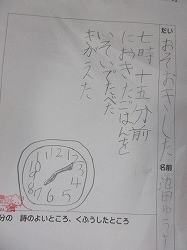 だい
おそおきした
名前
七時十五分前
におきたごはんを
いそいでたべた
きがえた
12
1
2
3
4
5
6
7
8
9
10
11
分の 詩のよいところ、くふうしたところ